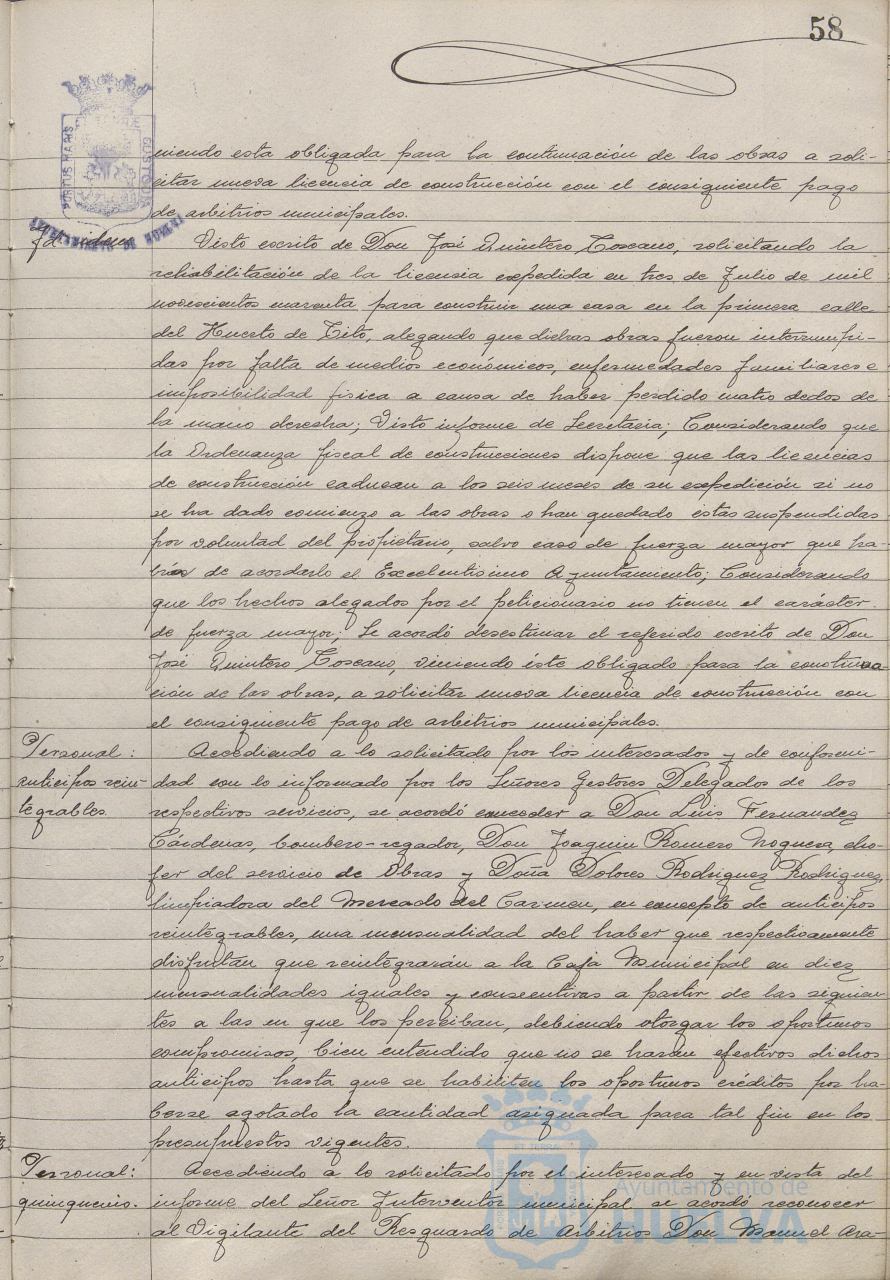 58
PORTUS MARIS CUSTODIA
AYUNTAMIENTO DE HUELVA
niendo esta obligada para la continuación de las obras a soli-
citar nueva licencia de construcción con el consiguiente pago
de arbitrios municipales.
Id. idem
Visto escrito de Don José Quintero Toscano, solicitando la
rehabilitación de la licencia expedida en tres de Julio de mil
novecientos cuarenta para construir una casa en la primera calle
del Huerto de Tito, alegando que dichas obras fueron interrumpi-
das por falta de medios económicos, enfermedades familiares e
imposibilidad física a causa de haber perdido cuatro dedos de
la mano derecha; Visto informe de Secretaria; Considerando que
la Ordenanza fiscal de construcciones dispone que las licencias
de construcción caducan a los seis meses de su expedición si no
se ha dado comienzo a las obras o han quedado éstas suspendidas
por voluntad del propietario, salvo caso de fuerza mayor que ha-
brá de acordarlo el Excelentísimo Ayuntamiento; Considerando
que los hechos alegados por el peticionario no tienen el carácter
de fuerza mayor; Se acordó desestimar el referido escrito de Don
José Quintero Toscano, viniendo éste obligado para la continua-
ción de las obras, a solicitar nueva licencia de construcción con
el consiguiente pago de arbitrios municipales.
Personal:
anticipos rein-
tegrables.
Accediendo a lo solicitado por los interesados y de conformi-
dad con lo informado por los Señores Gestores Delegados de los
respectivos servicios, se acordó conceder a Don Luis Fernandez
Cárdenas, bombero-regador, Don Joaquin Romero Noguera, cho-
fer del servicio de Obras y Doña Dolores Rodriguez Rodriguez,
limpiadora del Mercado del Carmen, en concepto de anticipos
reintegrables, una mensualidad del haber que respectivamente
disfrutan que reintegrarán a la Caja Municipal en diez
mensualidades iguales y consecutivas a partir de las siguien-
tes a las en que los perciban, debiendo otorgar los oportunos
compromisos, bien entendido que no se harán efectivos dichos
anticipos hasta que se habiliten los oportunos créditos por ha-
berse agotado la cantidad asignada para tal fin en los
presupuestos vigentes.
Personal:
quinquenio.
Accediendo a lo solicitado por el interesado y en vista del
informe del Señor Interventor municipal se acordó reconocer
al Vigilante del Resguardo de Arbitrios Don Manuel Ara-
Ayuntamiento de
HUELVA